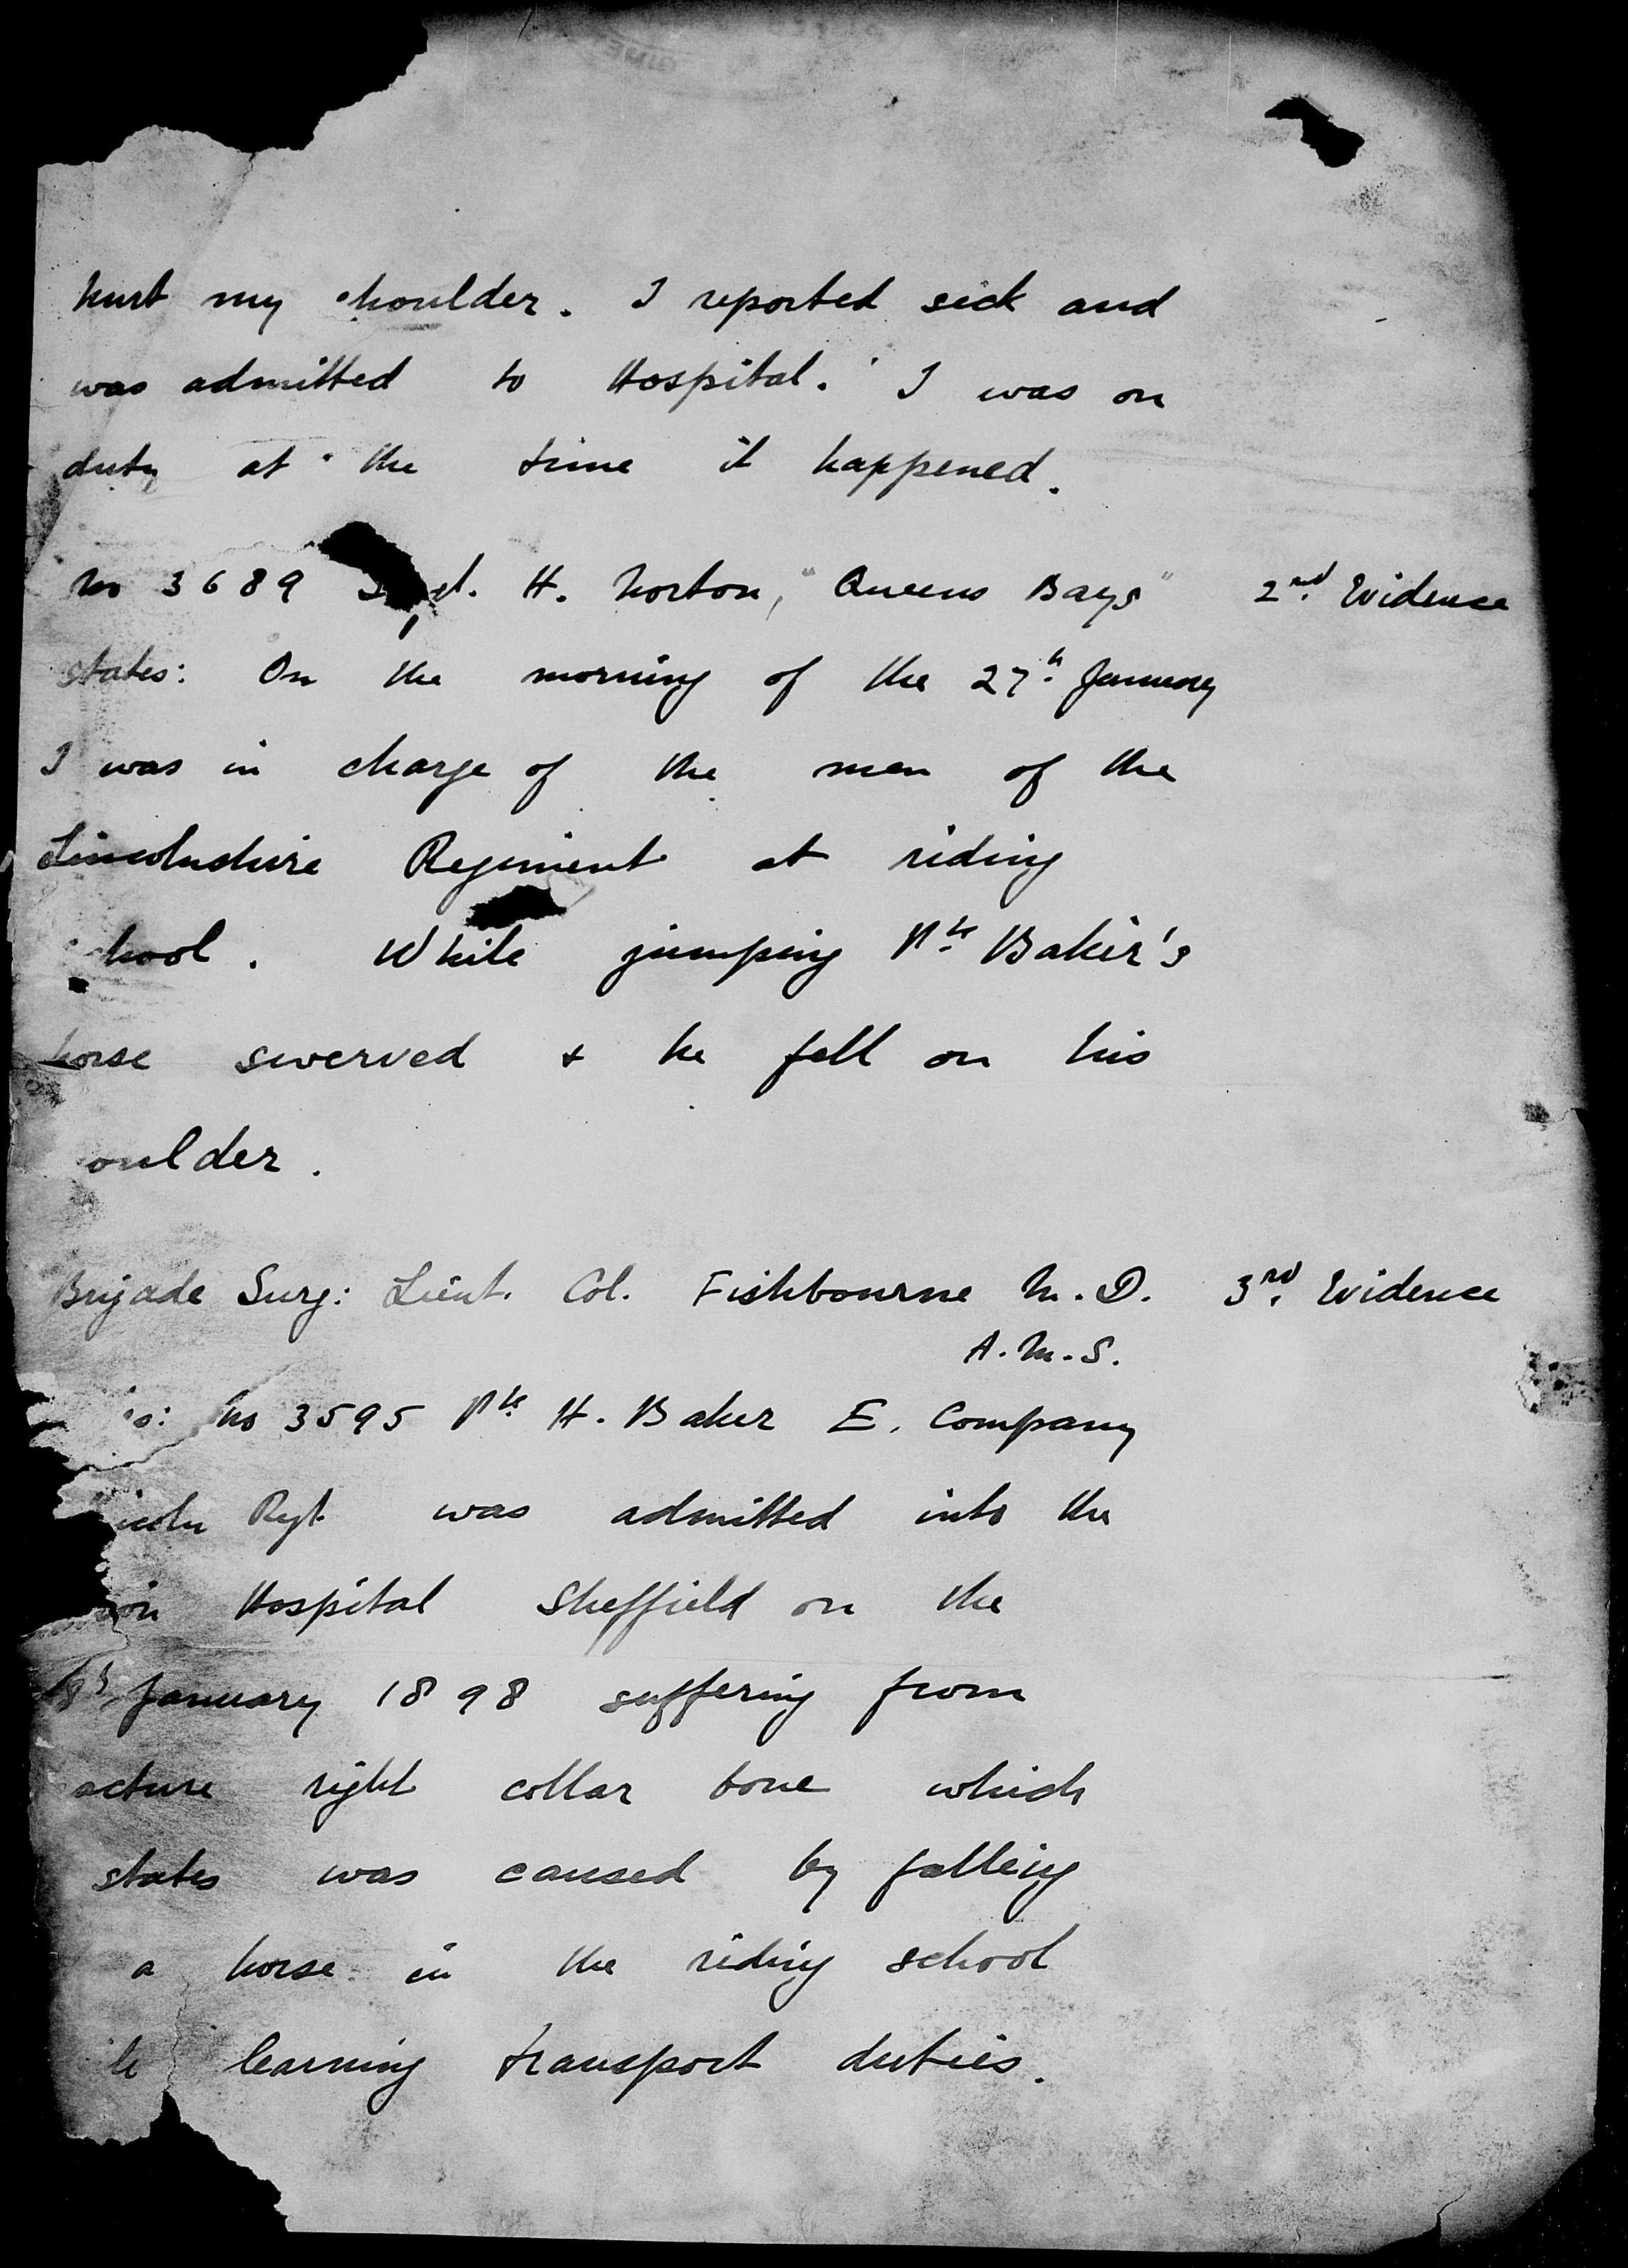 hurt my shoulder. I reported sick and
was admitted to Hospital. I was on
duty at the time it happened.
No 3689 H. Norton, "Queens Bays" 2nd. Evidence
states: On the morning of the 27th January
I was in charge of the men of the
Lincolnshire Regiment at riding
chool. While jumping Pte Baker's
horse swerved & he fell on his
oulder.
Brigade Surg: Lieut. Col. Fishbourne M.D. 3rd. Evidence
A.M.S.
No 3595 Pte H. Baker E. Company
incoln Regt was admitted into the
Hospital Sheffield on the
January 1898 suffering from
acture right collar bone which
states was caused by falling
a horse in the riding school
learning transport duties.